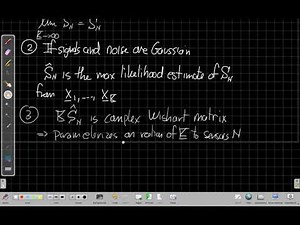 lim Ŝ_N = S_N
K→∞
② If signals and noise are Gaussian
Ŝ_N is the max likelihood estimate of S_N
from X_1, ..., X_K
③ K Ŝ_N is complex Wishart matrix
⇒ parameterizes on ratio of K to sensors N